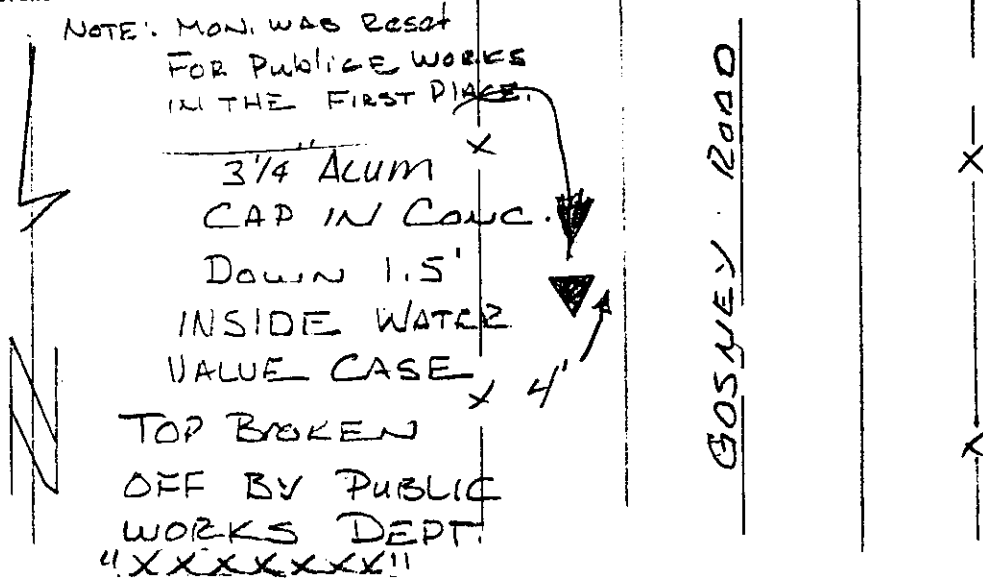 NOTE: MON. WAS Reset
FOR PUbliCE WORKS
IN THE FIRST PlACE.
3 1/4" ALUM
CAP IN CONC.
DOWN 1.5'
INSIDE WATER
VALUE CASE
4'
TOP BROKEN
OFF BY PUBLIC
WORKS DEPT.
"XXXXXXX"
GOSNEY ROAD
N